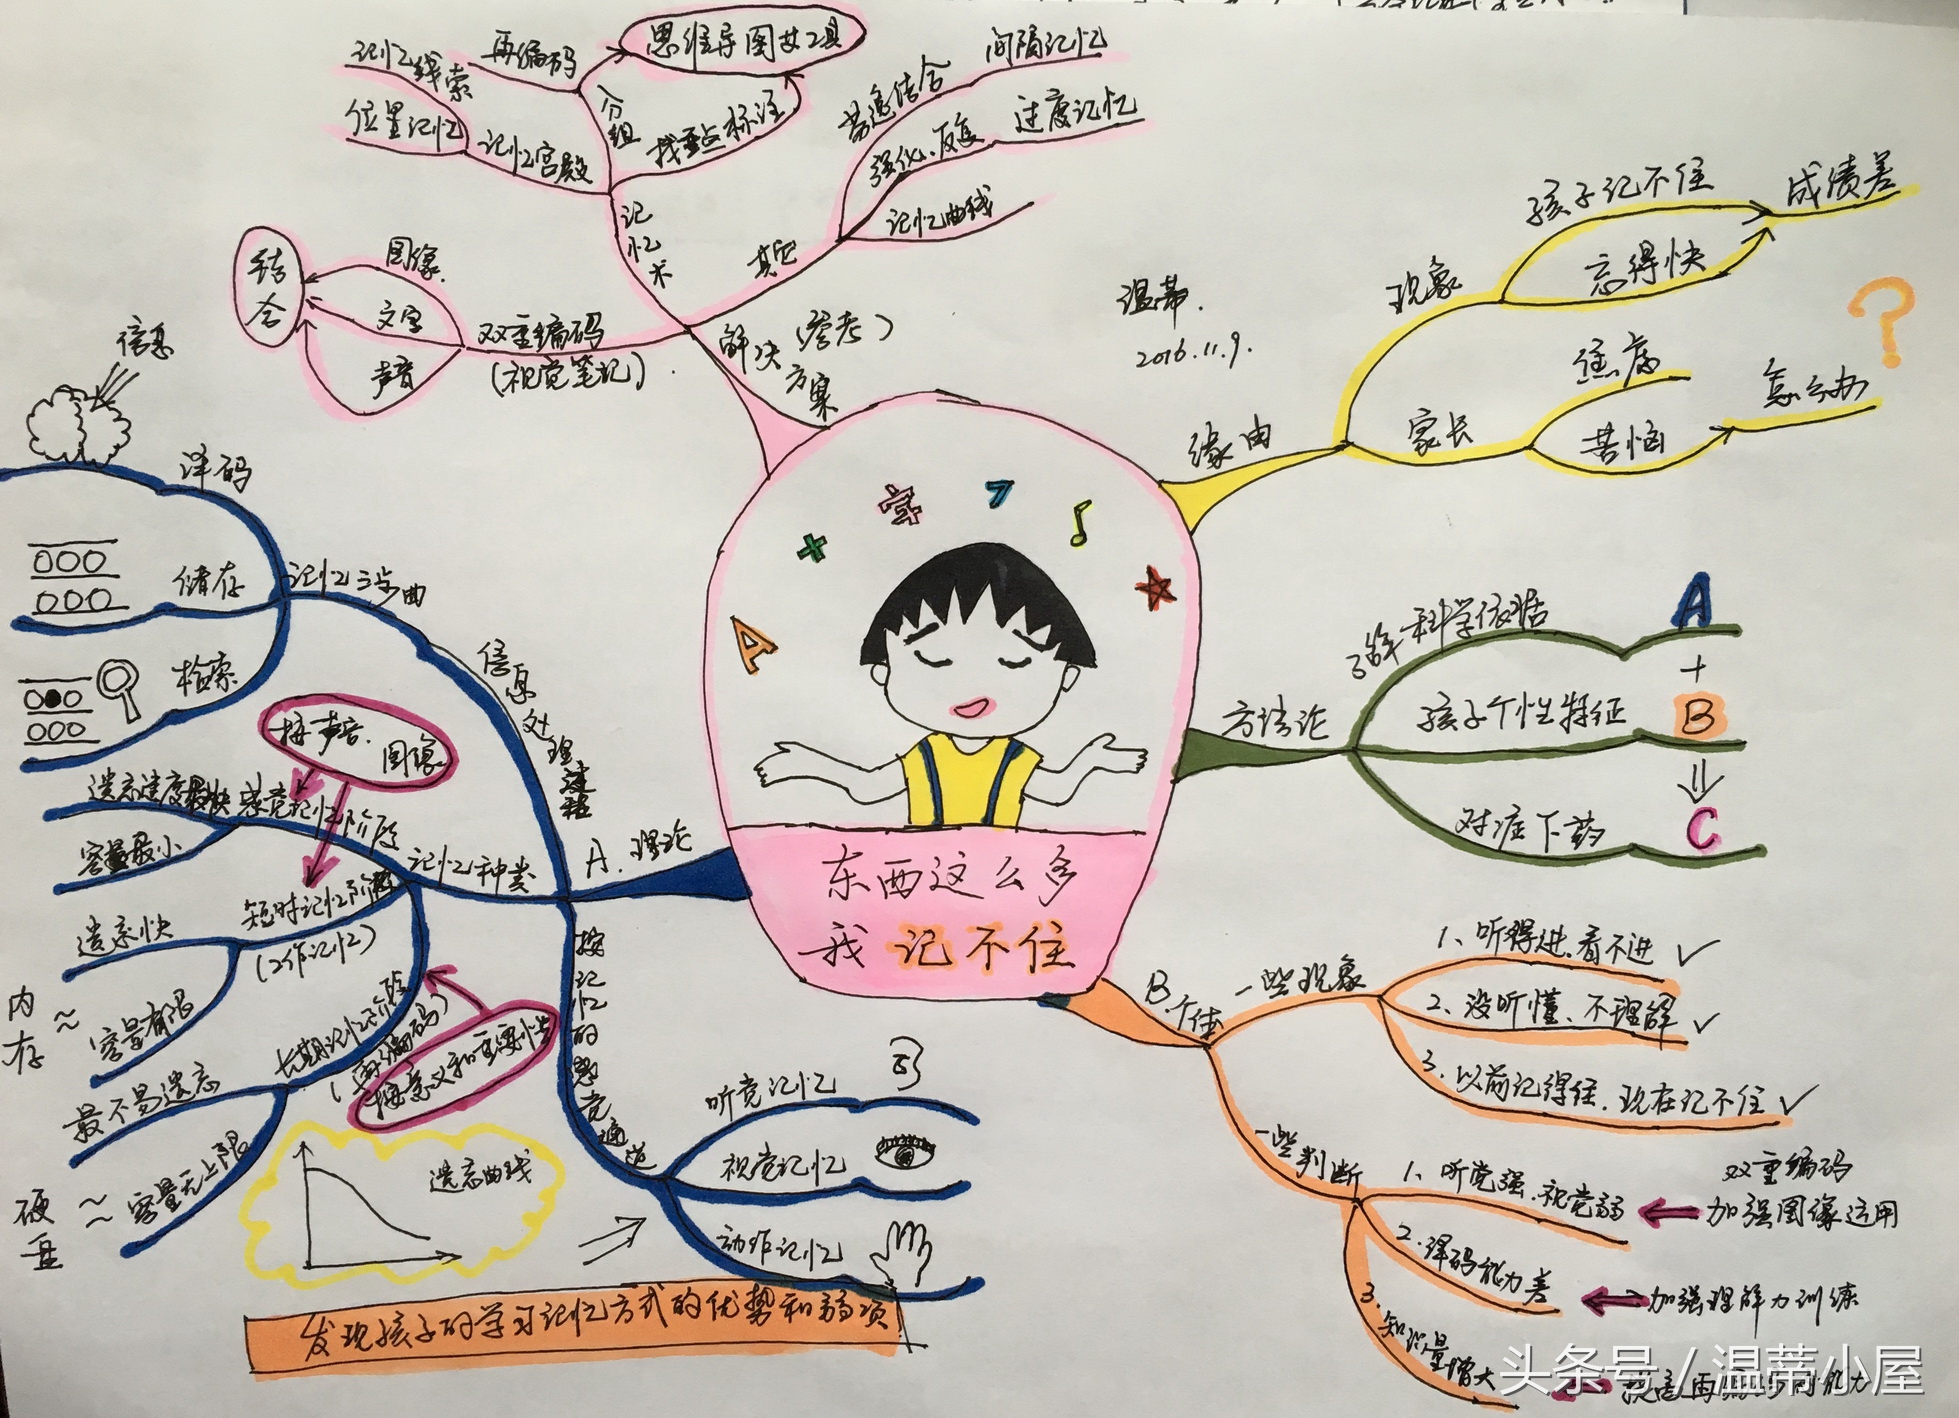 东西这么多
我记不住
温蒂.
2016.11.9.
缘由
现象
孩子记不住
忘得快
成绩差
家长
焦虑
苦恼
怎么办
?
方法论
了解科学依据
A
+
孩子个性特征
B
⇓
对症下药
C
B 个体
一些现象
1、听得进.看不进 ✓
2、没听懂、不理解 ✓
3.以前记得住.现在记不住 ✓
一些判断
1、听觉强.视觉弱
双重编码
加强图像运用
2.译码能力差
加强理解力训练
3.知识量增大
A.理论
信息处理过程
记忆三步曲
信息
译码
储存
检索
记忆种类
按声音.
图像
感觉记忆阶段
遗忘速度最快
容量最小
短时记忆阶段
(工作记忆)
遗忘快
容量有限
内存
长期记忆阶段
(再编码)
按意义和重要性
最不易遗忘
容量无上限
硬盘
按记忆的感觉通道
听觉记忆
视觉记忆
动作记忆
遗忘曲线
发现孩子的学习记忆方式的优势和弱项
解决方案
(参考)
双重编码
(视觉笔记)
图像
文字
声音
结合
记忆术
记忆宫殿
记忆线索
位置记忆
分组
再编码
思维导图工具
找重点标注
其它
劳逸结合
间隔记忆
强化.反复
过度记忆
记忆曲线
A
+
字
7
♪
头条号 / 温蒂小屋